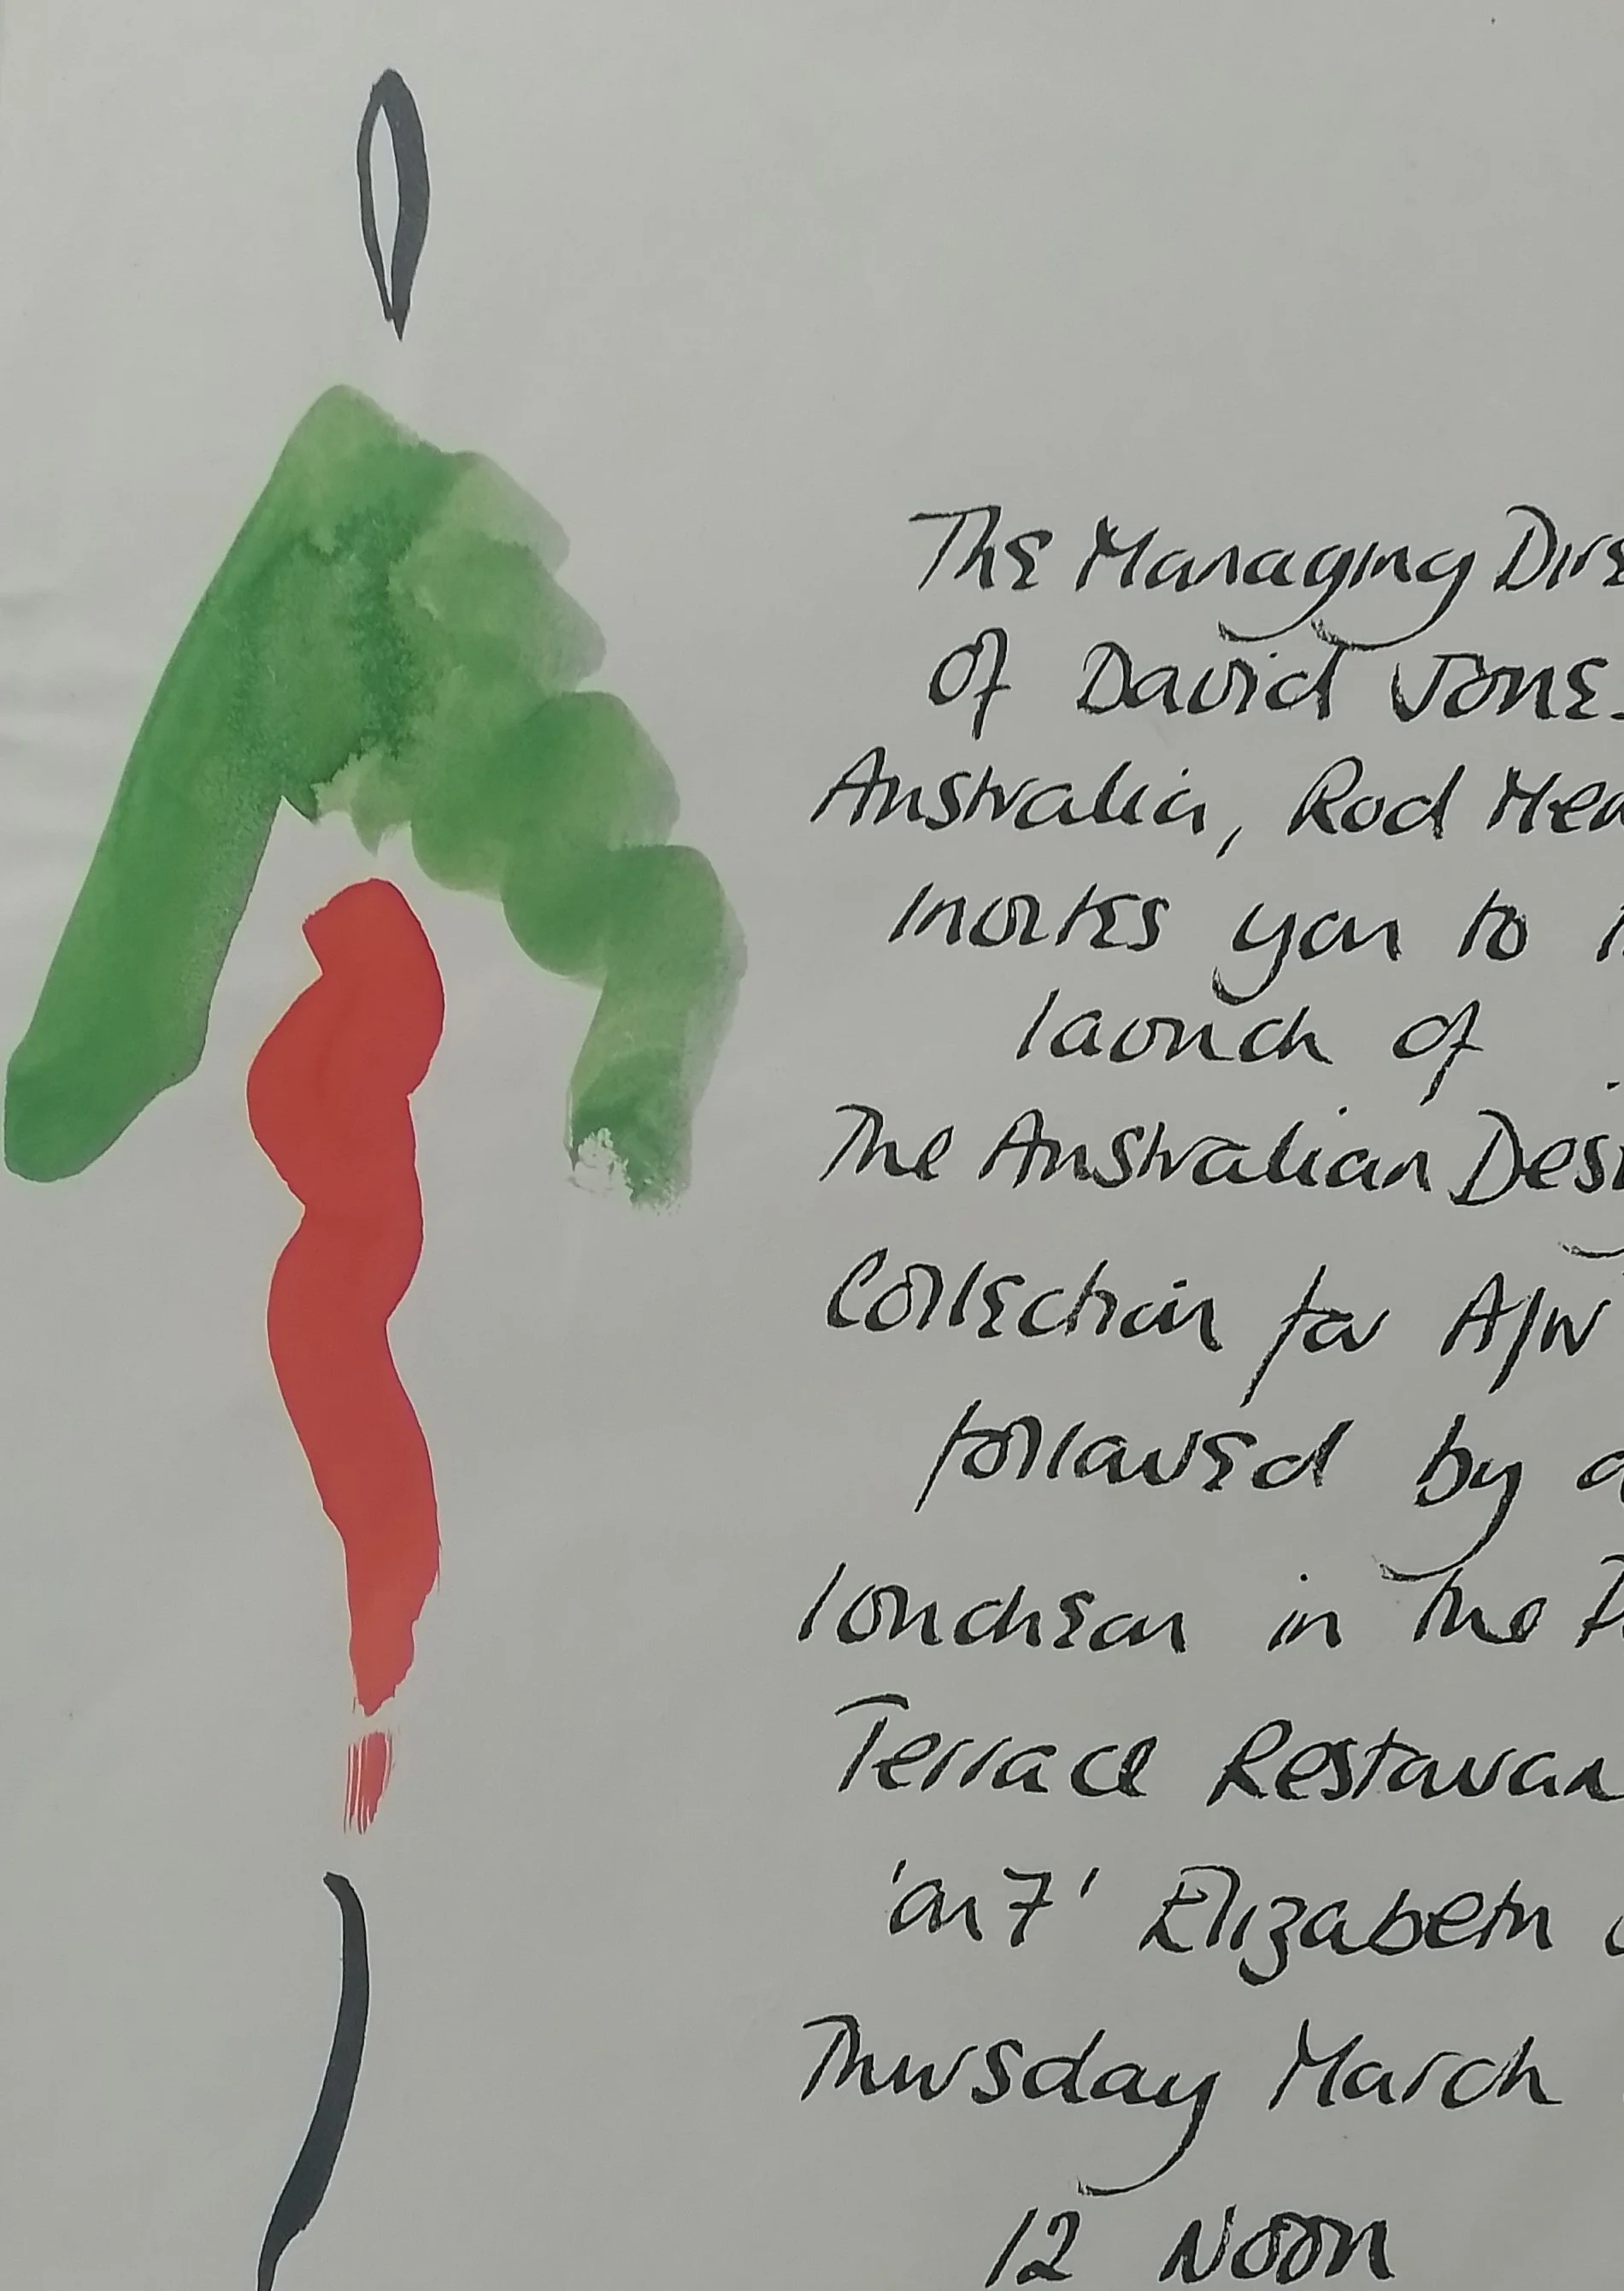 The Managing Dire
of David Jones
Australia, Rod Mea
invites you to
launch of
The Australian Desi
Collection for A/W
followed by a
luncheon in the
Terrace Restauran
'on 7' Elizabeth
Thursday March
12 Noon